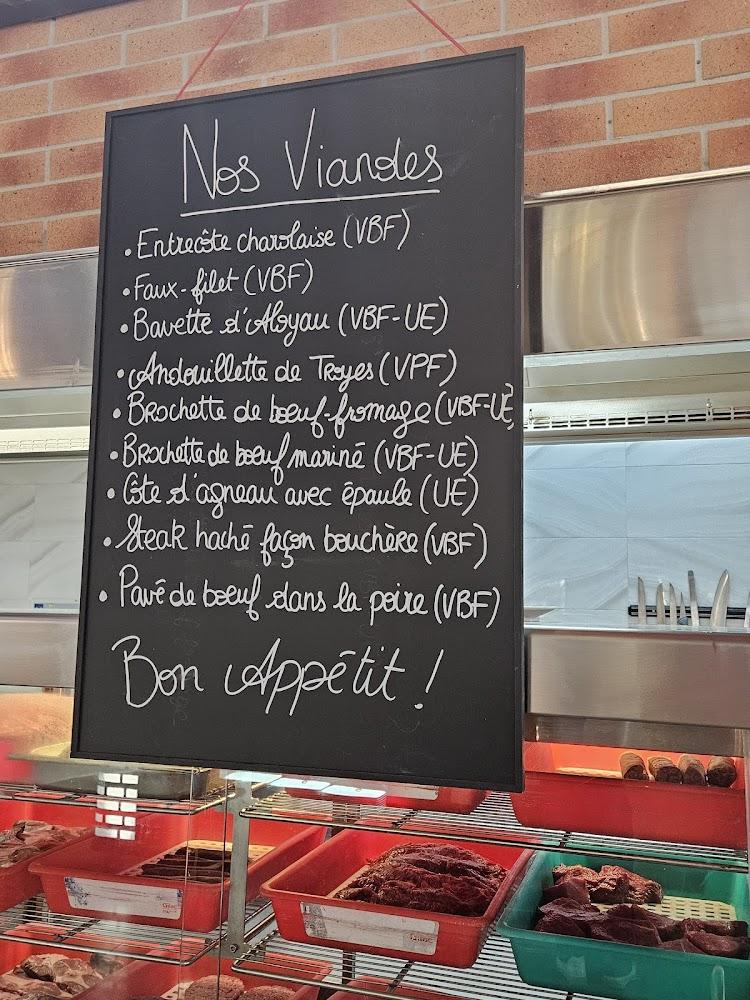 Nos Viandes
• Entrecôte charolaise (VBF)
• Faux-filet (VBF)
• Bavette d'Aloyau (VBF-UE)
• Andouillette de Troyes (VPF)
• Brochette de bœuf-fromage (VBF-UE)
• Brochette de bœuf mariné (VBF-UE)
• Côte d'agneau avec épaule (UE)
• Steak haché façon bouchère (VBF)
• Pavé de bœuf dans la poire (VBF)
Bon Appétit !